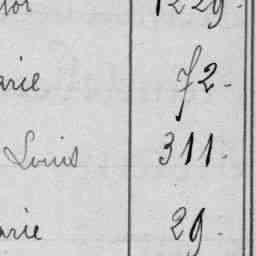 1229.
arie 72.
Louis 311.
arie 29.